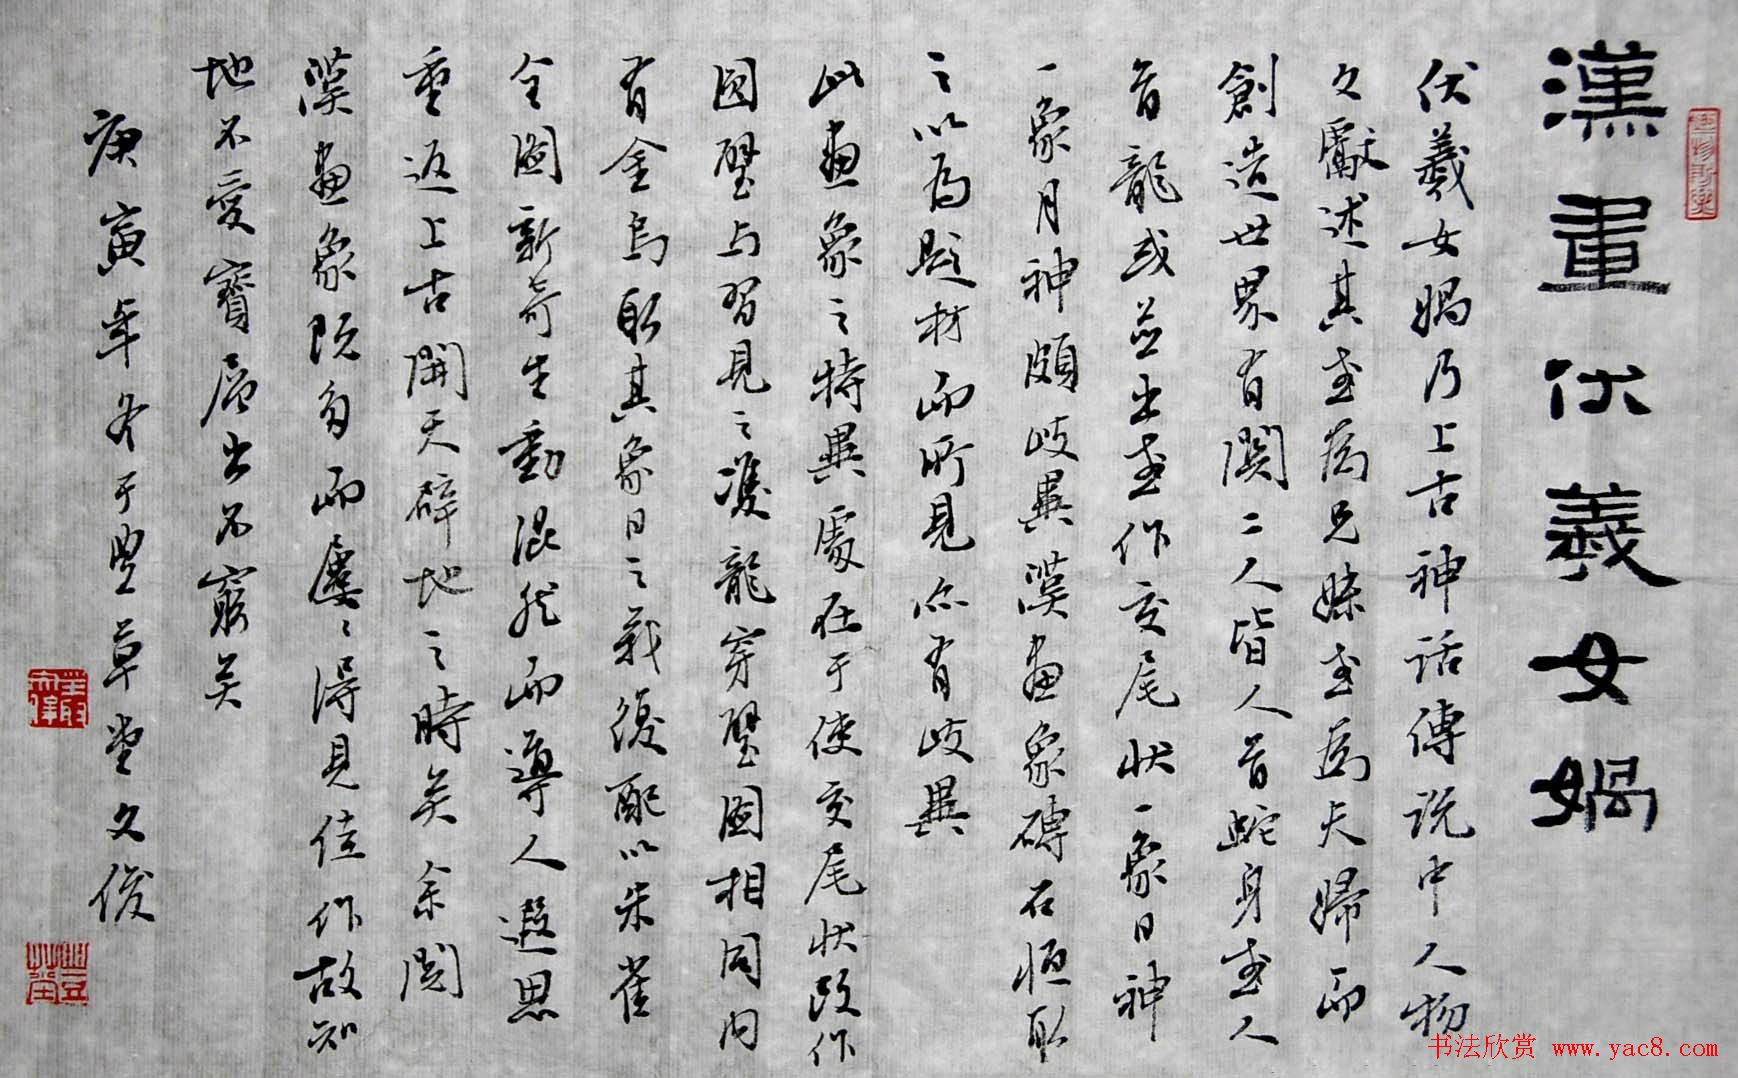 漢畫伏羲女媧
伏羲女媧乃上古神話傳説中人物
久獻述其或為兄妹或為夫婦而
創造世界有関二人皆人首蛇身或人
首龍或並出或作交尾狀一象日神
一象月神頗歧異漢畫象磚石恒取
之以為題材而所見亦有歧異
此畫象之特異處在于使交尾狀改作
圓璧与習見之雙龍穿璧圖相同内
有金烏取其象日之義復配以朱雀
全圖新奇生動混然而導人遐思
重返上古開天辟地之時矣余閲
漢畫象既多而屢々得見佳作故知
地不愛寶層出不窮矣
庚寅年冬于豐草堂文俊
書法欣赏 www.yac8.com